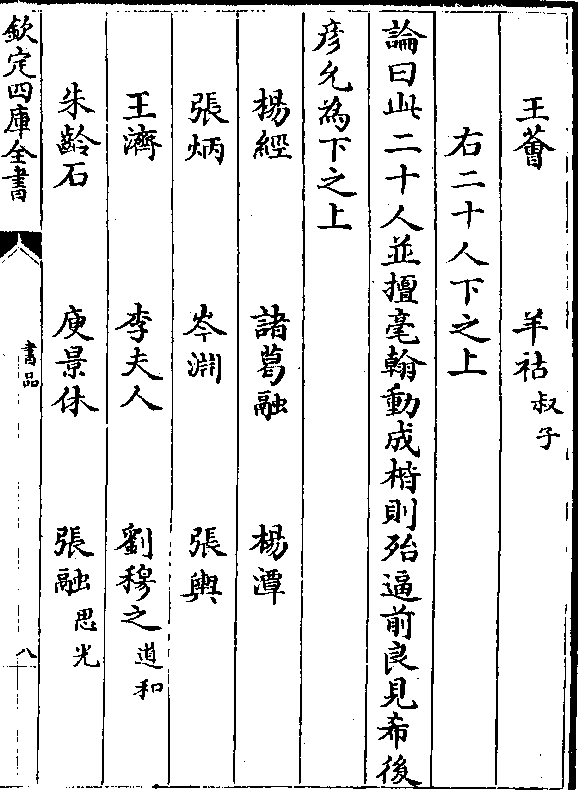 王薈　羊祜叔子
右二十人下之上
論曰此二十人並擅毫翰動成楷則殆逼前良見希後
彦允為下之上
楊經　諸葛融　楊潭
張炳　岑淵　張輿
王濟　李夫人　劉穆之道和
朱齡石　庾景休　張融思光
欽定四庫全書　書品　八